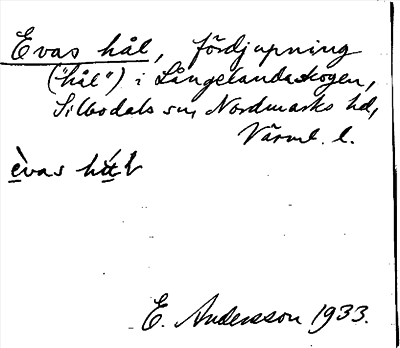 Evas hål, fördjupning
("hål") i Långelandaskogen,
Silbodals sn, Nordmarks hd,
Värml. l.
èvas hɑ́l
E. Andersson 1933.